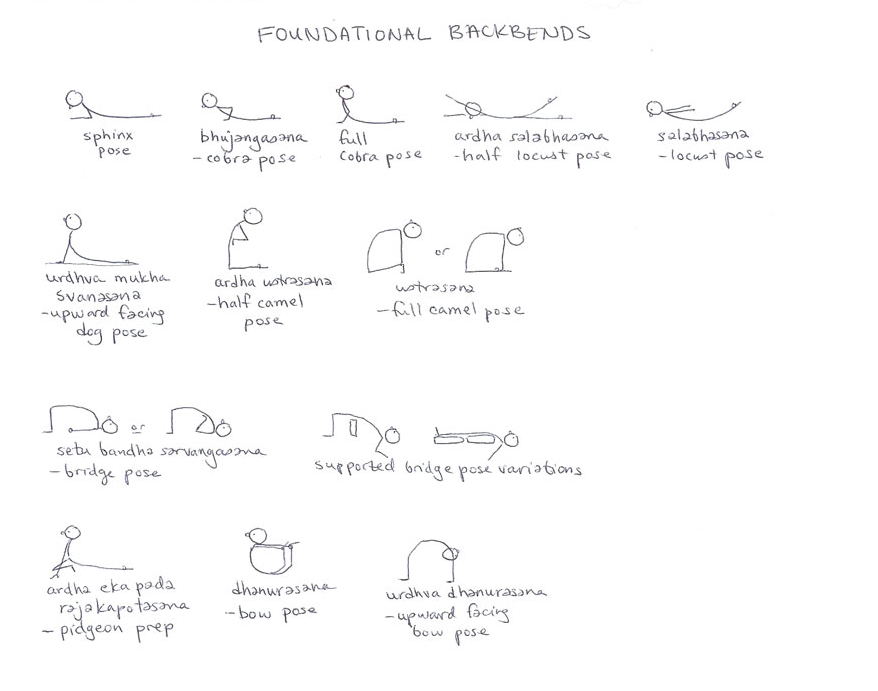 FOUNDATIONAL BACKBENDS
sphinx
pose
bhujangasana
- cobra pose
full
cobra pose
ardha salabhasana
- half locust pose
salabhasana
- locust pose
urdhva mukha
svanasana
- upward facing
dog pose
ardha ustrasana
- half camel
pose
or
ustrasana
- full camel pose
or
setu bandha sarvangasana
- bridge pose
supported bridge pose variations
ardha eka pada
rajakapotasana
- pidgeon prep
dhanurasana
- bow pose
urdhva dhanurasana
- upward facing
bow pose